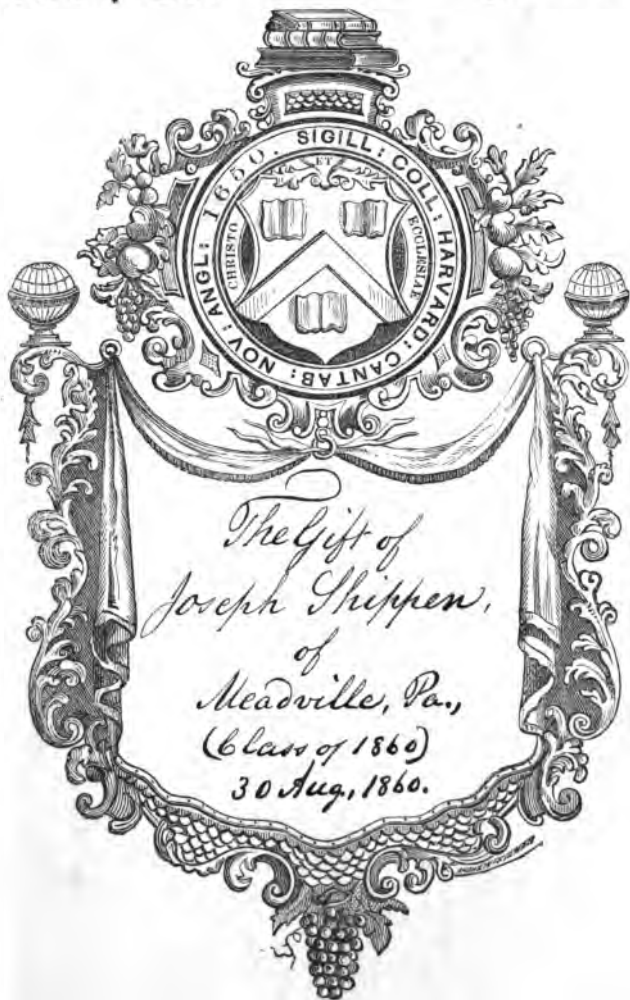 SIGILL: COLL: HARVARD: CANTAB: NOV: ANGL: 1650.
ET
CHRISTO
ECCLESIAE
The Gift of
Joseph Shippen,
of
Meadville, Pa.,
(Class of 1860)
30 Aug., 1860.